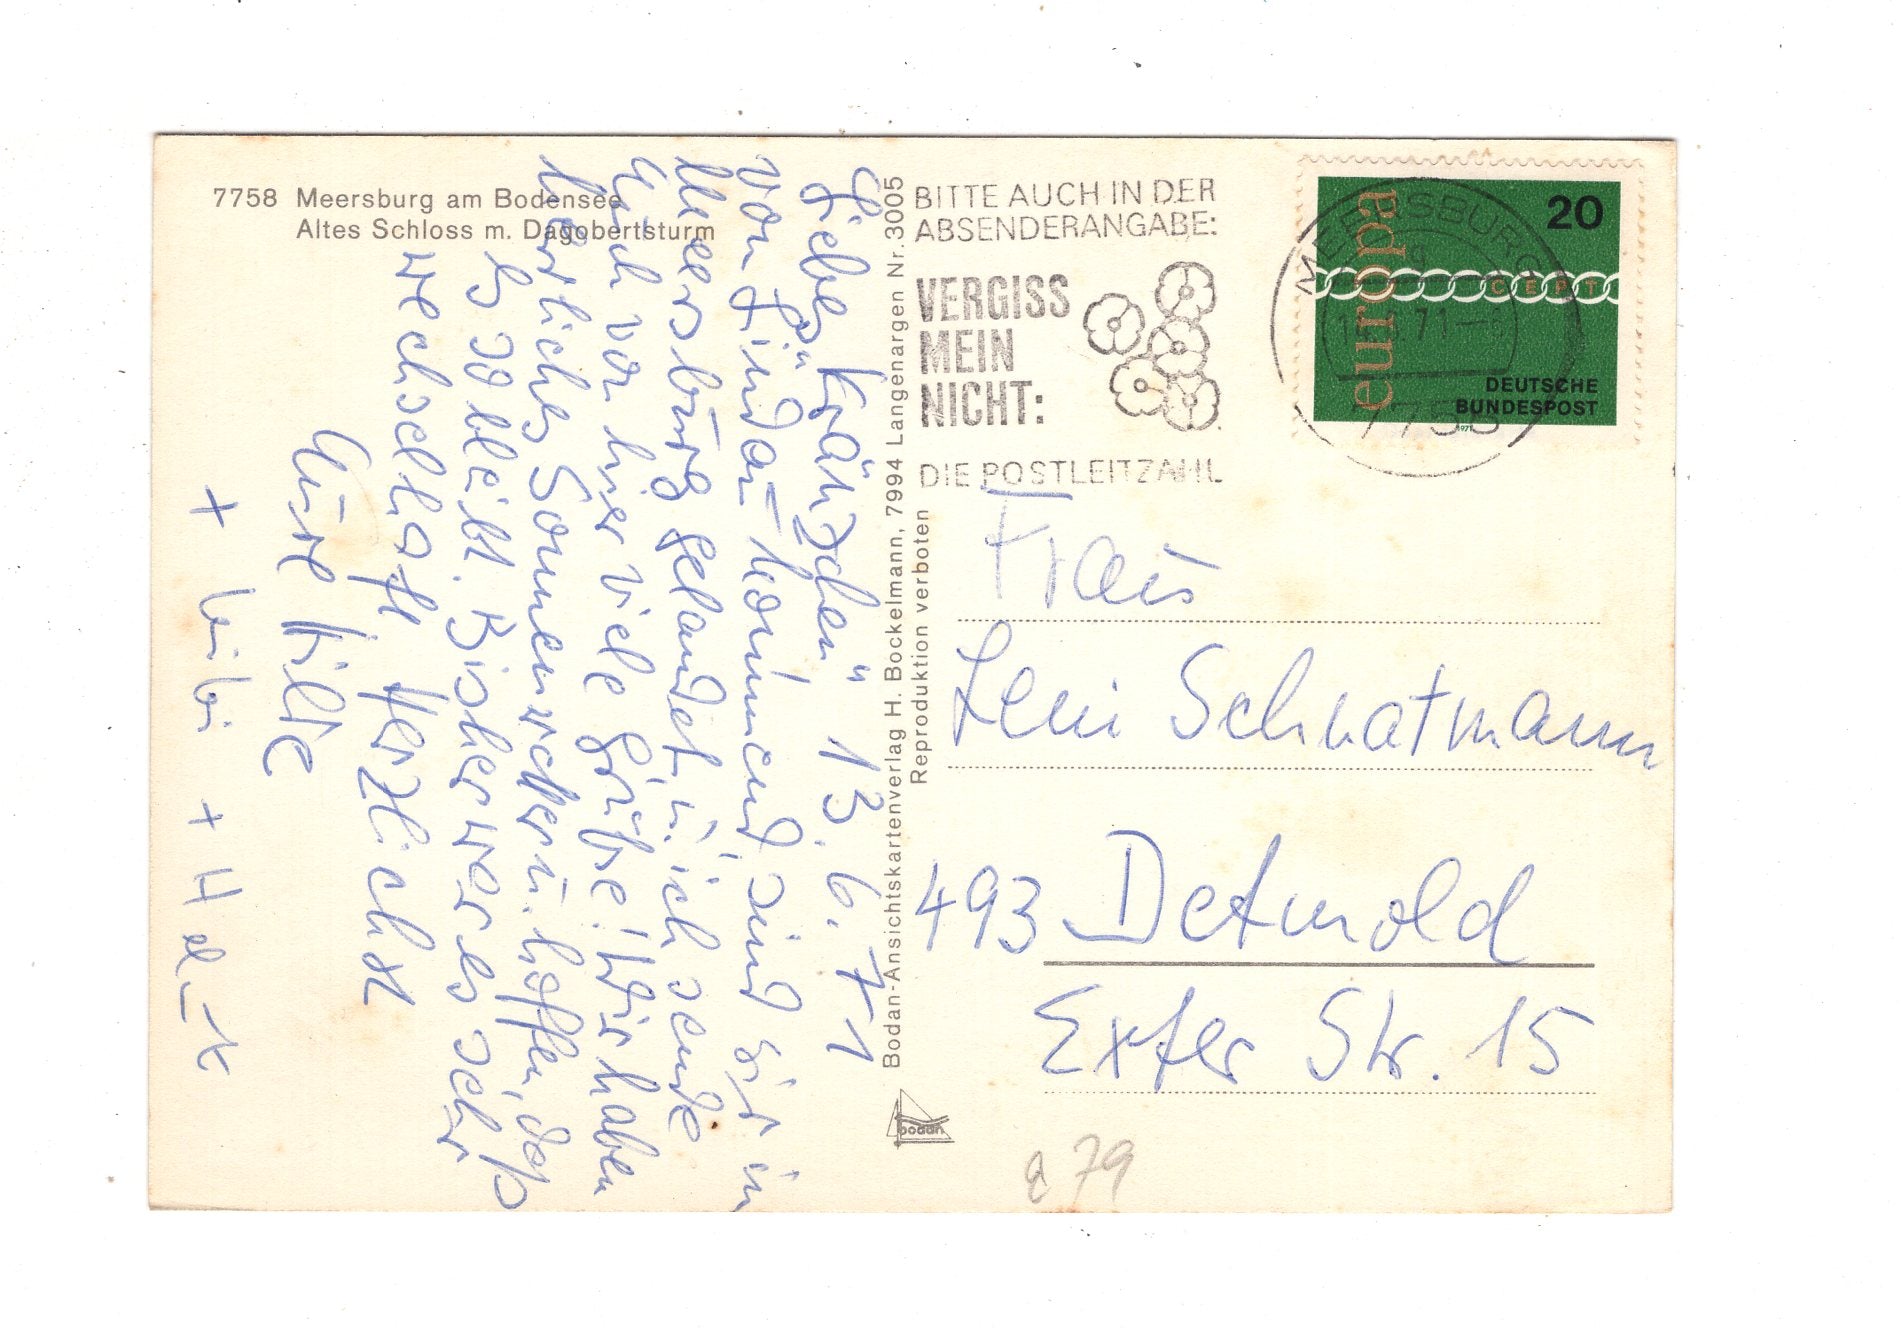 7758 Meersburg am Bodensee
Altes Schloss m. Dagobertsturm
Liebes „Kränzchen" 13.6.71
von Lindau kommend sind wir in
Meersburg gelandet u. ich sende
Euch von hier viele Grüße! Wir haben
herrliches Sonnenwetter u. hoffen, daß
es so bleibt. Bisher war es sehr
wechselhaft. Herzlichst
Eure Hilde
+ +
Bodan-Ansichtskartenverlag H. Bockelmann, 7994 Langenargen Nr. 3005
Reproduktion verboten
bodan
BITTE AUCH IN DER
ABSENDERANGABE:
VERGISS
MEIN
NICHT:
DIE POSTLEITZAHL
MEERSBURG
71
7758
europa
20
CEPT
DEUTSCHE
BUNDESPOST
1971
Frau
Leni Schnatmann
493 Detmold
Exter Str. 15
79